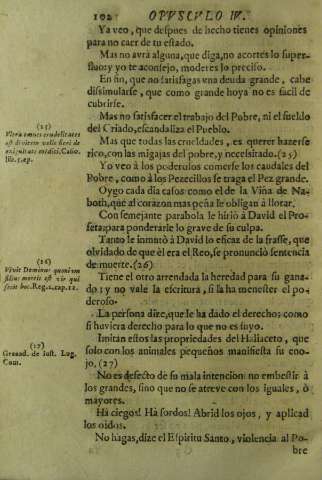 102 OPVSCVLO IV.
Ya veo, que despues de hecho tienes opiniones
para no caer de tu estado.
Mas no avrà alguna, que diga, no acortes lo super-
fluo: y yo te aconsejo, moderes lo preciso.
En fin, que no satisfagas vna deuda grande, cabe
dissimularse, que como grande hoya no es facil de
cubrirse.
Mas no satisfacer el trabajo del Pobre, ni el sueldo
del Criado, escandaliza el Pueblo.
Mas que todas las crueldades, es querer hazerse
rico, con las migajas del pobre, y necessitado. (25)
Yo veo à los poderosos comerse los caudales del
Pobre, como à los Pezecillos se traga el Pez grande.
Oygo cada dia casos como el de la Viña de Na-
both, que al corazon mas peña le obligan à llorar.
Con semejante parabola le hiriò à David el Pro-
feta: para ponderarle lo grave de su culpa.
Tanto le inmutò à David lo eficaz de la frasse, que
olvidado de que èl era el Reo, se pronunciò sentencia
de muerte. (26)
Tiene el otro arrendada la heredad para su gana-
do: y no vale la escritura, si la ha menester el po-
deroso.
La persona dize, que le ha dado el derecho: como
si huviera derecho para lo que no es suyo.
Imitan estos las propriedades del Haliaceto, que
solo con los animales pequeños manifiesta su eno-
jo. (27)
No es defecto de su mala intencion no embestir à
los grandes, sino que no se atreve con los iguales, ò
mayores.
Hà ciegos! Hà sordos! Abrid los ojos, y aplicad
los oidos.
No hagas, dize el Espiritu Santo, violencia al Po-
bre
(25)
Vltra omnes crudelitates
est divitem velle fieri de
exiguitate mendici. Casio.
lib. 5. ep.
(26)
Vivit Dominus quoniam
filius mortis est vir qui
fecit hoc. Reg. 2. cap. 12.
(27)
Granad. de Iust. Lug.
Com.